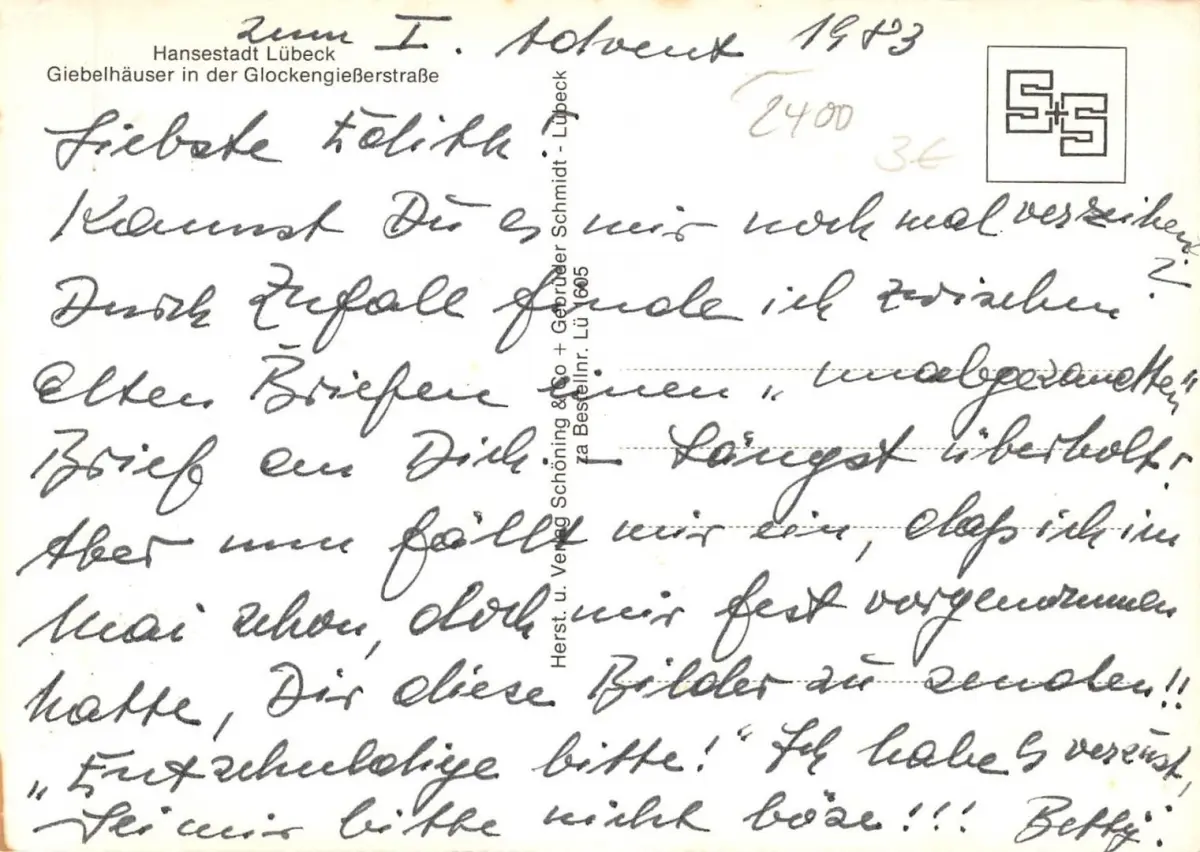 zum I. Advent 1983
Hansestadt Lübeck
Giebelhäuser in der Glockengießerstraße
2400
3€
S+S
Liebste Edith!
Kannst Du es mir noch mal verzeihen
?
Durch Zufall finde ich zwischen
alten Briefen einen „unabgesandten"
Brief an Dich. – Längst überholt!
Aber nun fällt mir ein, daß ich im
Mai schon, doch mir fest vorgenommen
hatte, Dir diese Bilder zu senden!!
„Entschuldige bitte!" Ich habe es
Sei mir bitte nicht böse!!! Betty.
Herst. u. Verlag Schöning & Co + Gebrüder Schmidt - Lübeck
za Bestellnr. Lü 1605